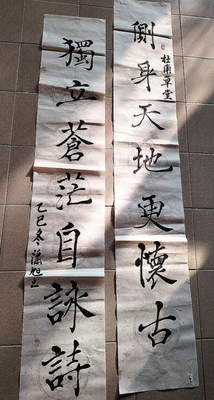 杜甫草堂
側身天地更懷古
獨立蒼茫自詠詩
乙巳冬